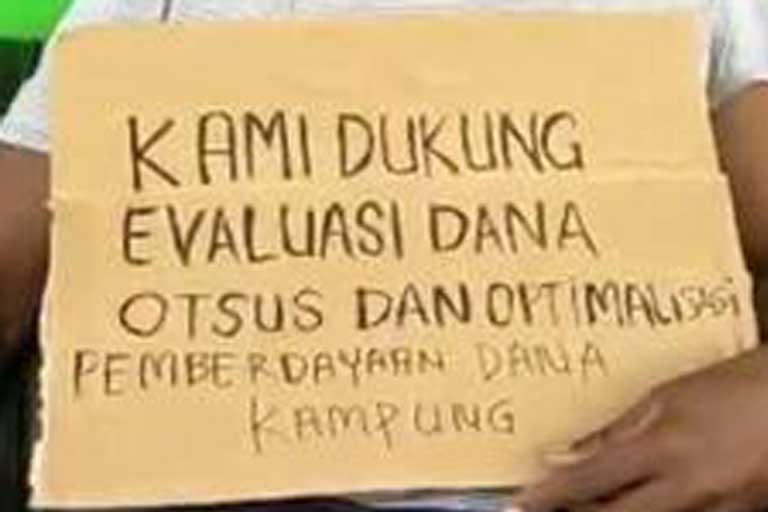 KAMI DUKUNG
EVALUASI DANA
OTSUS DAN OPTIMALISASI
PEMBERDAYAAN DANA
KAMPUNG